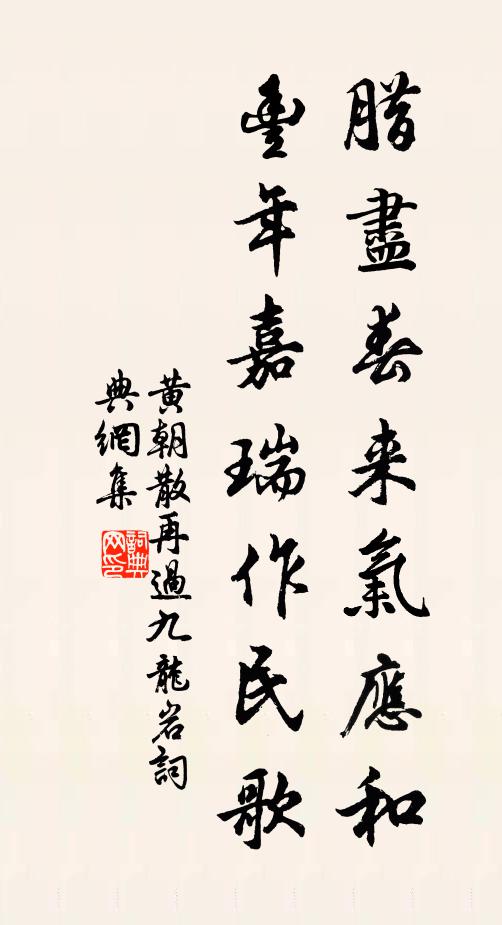 腊盡春来氣應和
豐年嘉瑞作民歌
黄朝散再過九龍岩詞
典網集
詞典
网印